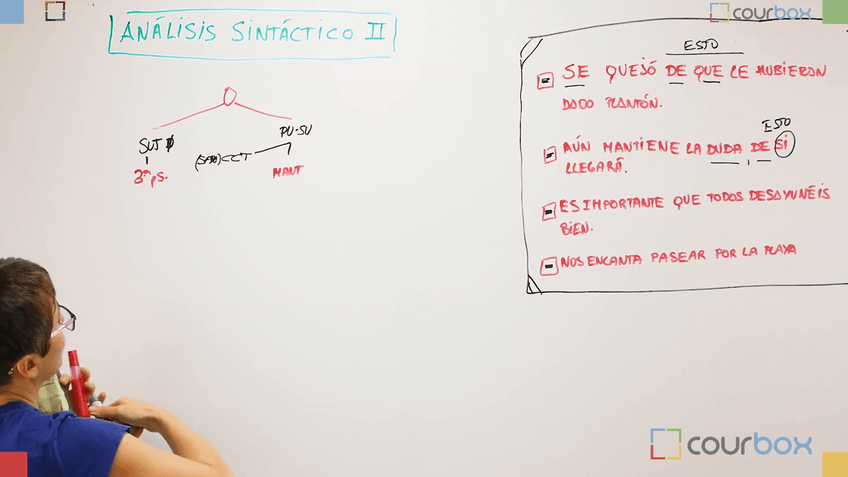 courbox
ANÁLISIS SINTÁCTICO II
ESTO
SE QUEJÓ DE QUE LE HUBIERAN
DADO PLANTÓN.
ESTO
AÚN MANTIENE LA DUDA DE SI
LLEGARÁ.
ES IMPORTANTE QUE TODOS DESAYUNÉIS
BIEN.
NOS ENCANTA PASEAR POR LA PLAYA
O
SUJ Ø
PV-SV
CCT
3ª pS.
MANT
courbox